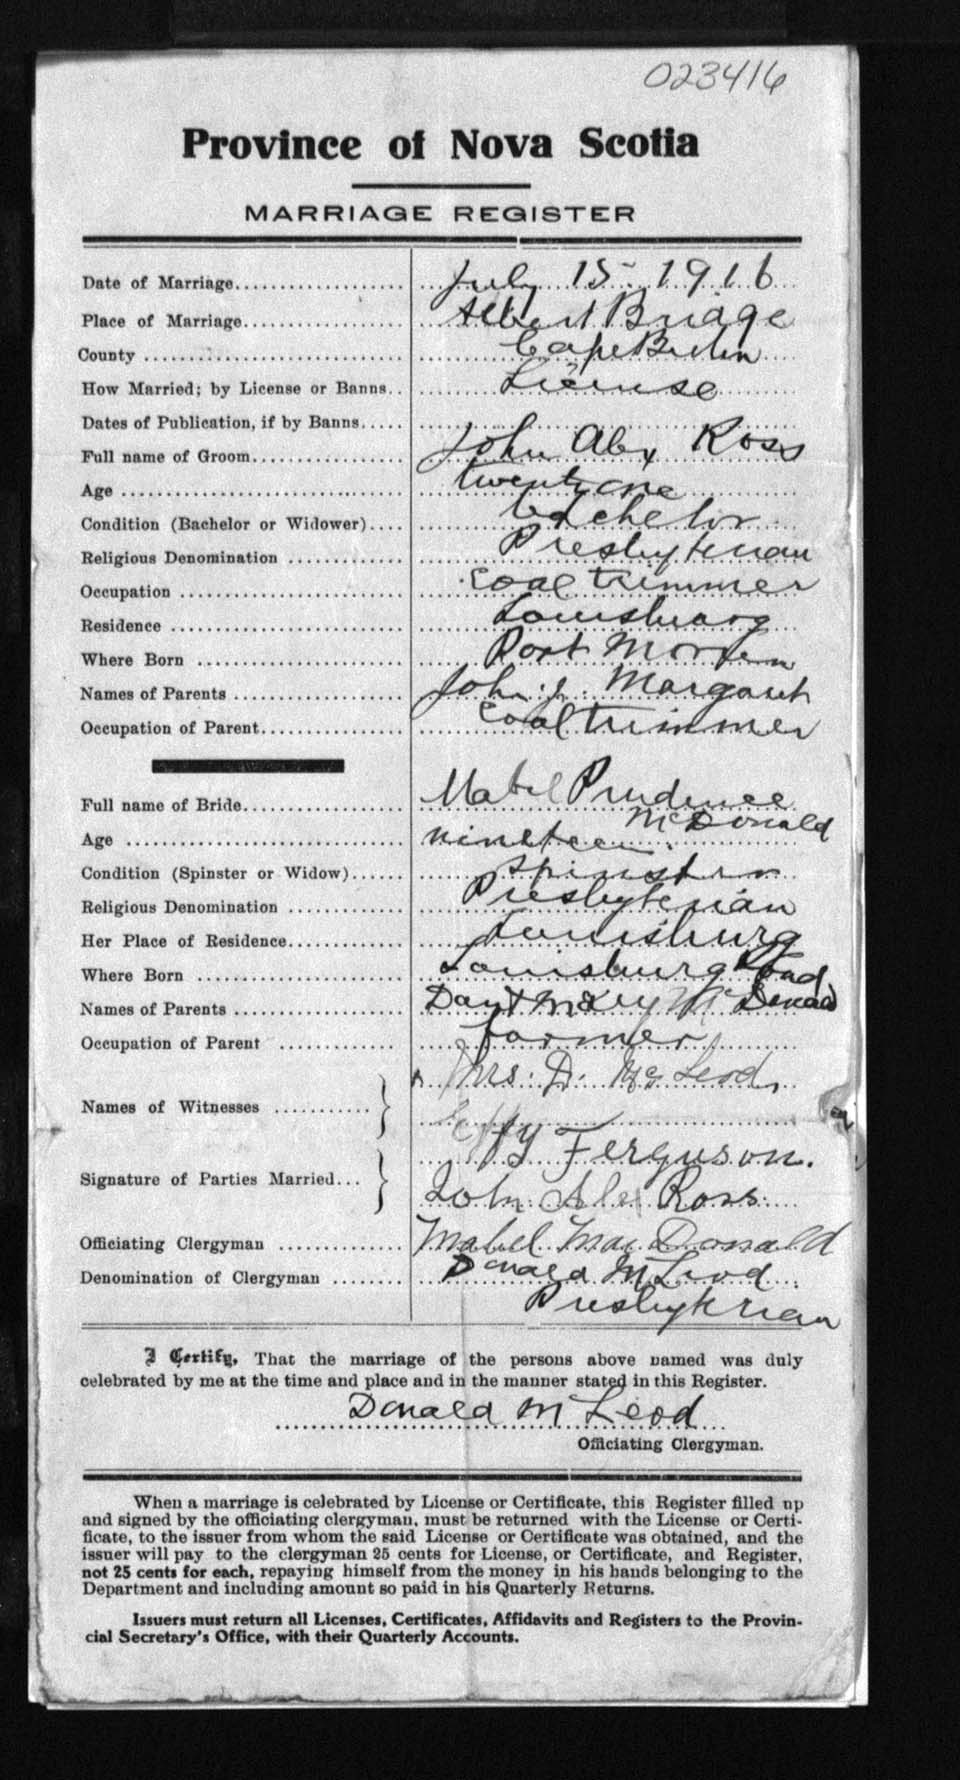 023416
Province of Nova Scotia
MARRIAGE REGISTER
Date of Marriage.................. July 15 - 1916
Place of Marriage.................. Albert Bridge
County .................. Cape Breton
How Married; by License or Banns.. License
Dates of Publication, if by Banns.....
Full name of Groom.................. John Alex Ross
Age .................. twenty one
Condition (Bachelor or Widower).... bachelor
Religious Denomination .................. Presbyterian
Occupation .................. coal trimmer
Residence .................. Louisburg
Where Born .................. Port Morien
Names of Parents .................. John J. Margaret
Occupation of Parent.................. coal trimmer
Full name of Bride.................. Mabel Prudence
McDonald
Age .................. nineteen.
Condition (Spinster or Widow)...... spinster
Religious Denomination .................. Presbyterian
Her Place of Residence.................. Louisburg
Where Born .................. Louisburg Road
Names of Parents .................. Dan + Mary McDonald
Occupation of Parent .................. farmer
Mrs. D. McLeod,
Names of Witnesses ...........
Effy Ferguson.
Signature of Parties Married... John Alex Ross
Officiating Clergyman .................. Mabel MacDonald
Denomination of Clergyman ........ Donald McLeod
Presbyterian
I Certify, That the marriage of the persons above named was duly
celebrated by me at the time and place and in the manner stated in this Register.
Donald McLeod
Officiating Clergyman.
When a marriage is celebrated by License or Certificate, this Register filled up
and signed by the officiating clergyman, must be returned with the License or Certi-
ficate, to the issuer from whom the said License or Certificate was obtained, and the
issuer will pay to the clergyman 25 cents for License, or Certificate, and Register,
not 25 cents for each, repaying himself from the money in his hands belonging to the
Department and including amount so paid in his Quarterly Returns.
Issuers must return all Licenses, Certificates, Affidavits and Registers to the Provin-
cial Secretary's Office, with their Quarterly Accounts.